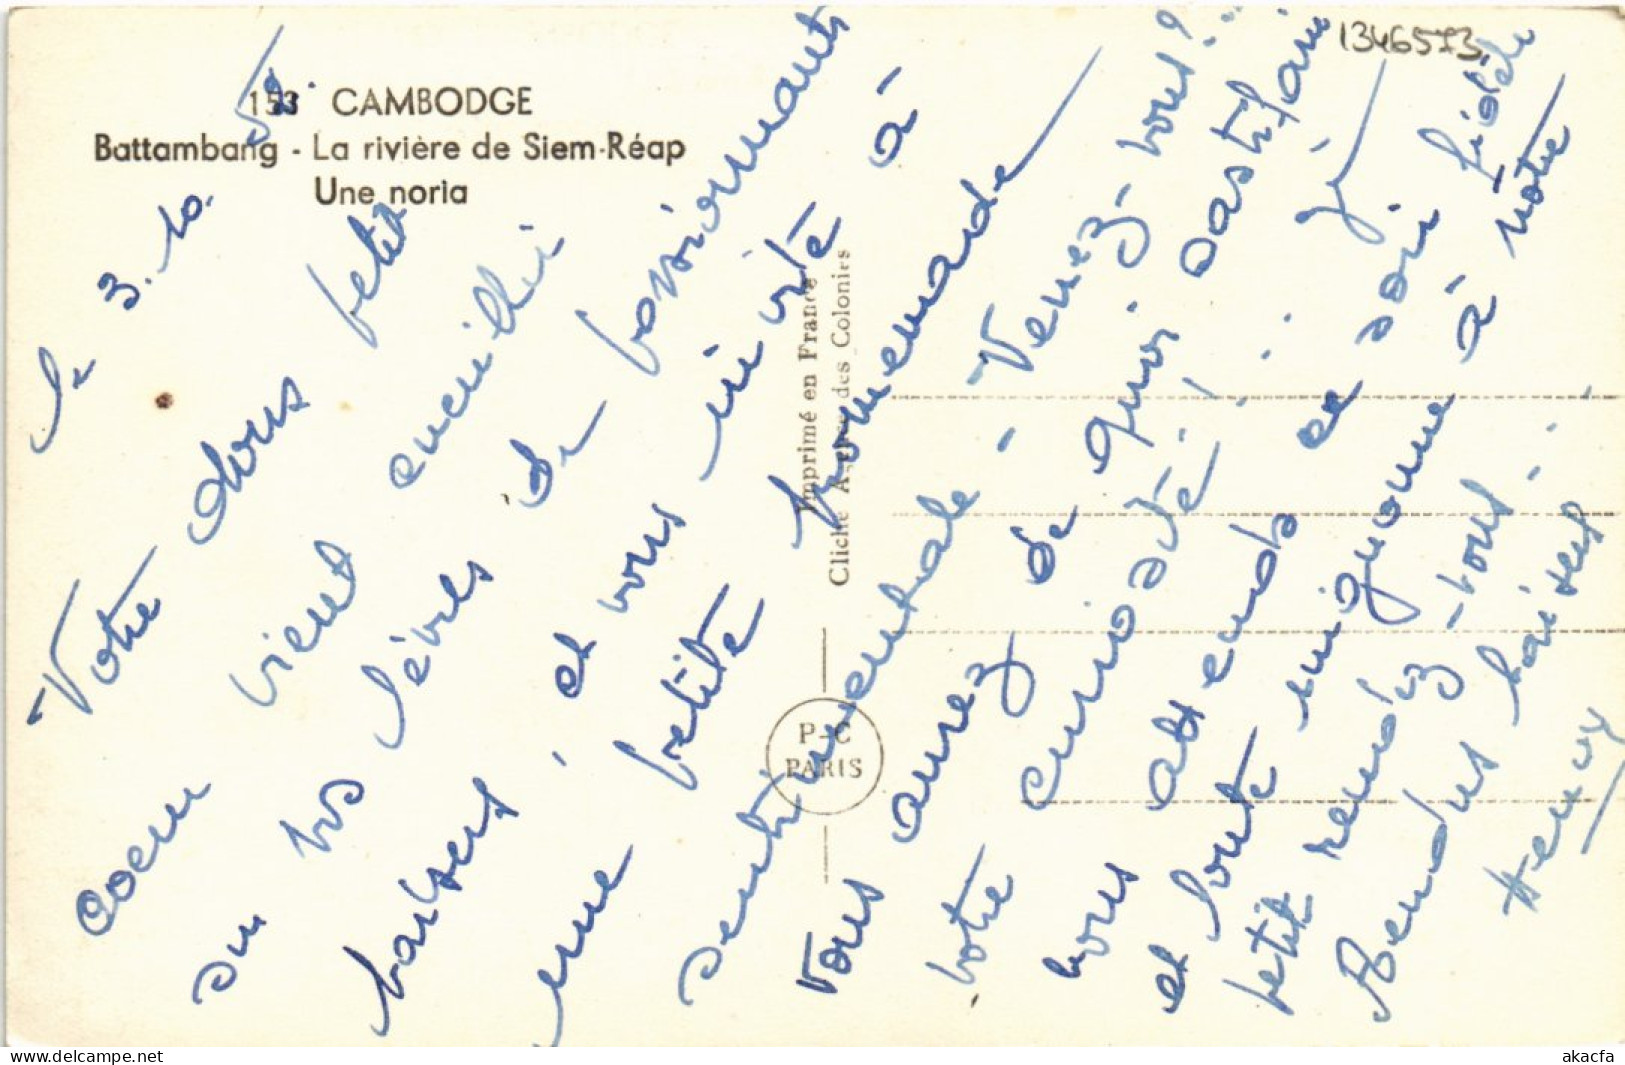 13465J3
153 CAMBODGE
Battambang - La rivière de Siem-Réap
Une noria
Imprimé en France
Cliché Agence des Colonies
P-C
PARIS
le 3.10.52.
Votre doux petit
coeur vient cueillir
sur vos lèvres de
baisers, et vous
une petite promenade
sentimentale - Venez-vous?..
Vous aurez de quoi satisfaire
votre curiosité! . . Je
vous attends ce soir fidèle
et toute mignonne à notre
petit rendez-vous - . -
Tendres baisers
Henry
passionnants
invité à
akcfa
www.delcampe.net
akacfa